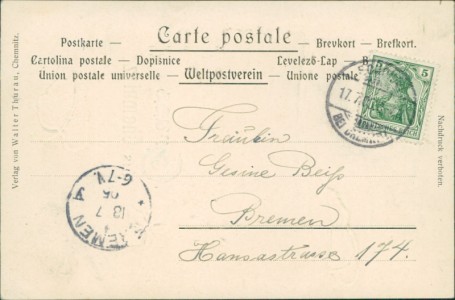 Carte postale
Postkarte — — Brevkort — Brefkort.
Cartolina postale — Dopisnice Levelező-Lap —
Union postale universelle — Weltpostverein — Unione postale
5
17.7.
BEI BREMEN
Fräulein
Gesine Beiß
Bremen
Hansastrasse 174.
BREMEN
13 7
05
6-7N.
Verlag von Walter Thürau, Chemnitz.
Nachdruck verboten.